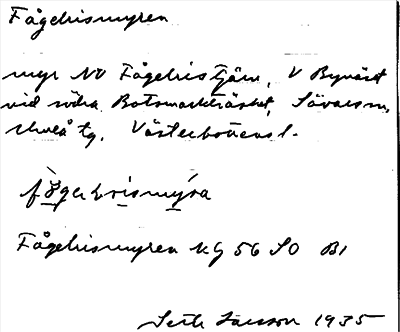 Fågelrismyren
myr NO Fågelristjärn, V Bynäset
vid södra Botsmarkträsket, Sävar sn,
Umeå tg, Västerbottens l.
Fågelrismyren kg 56 SO B1
Seth Larsson 1935